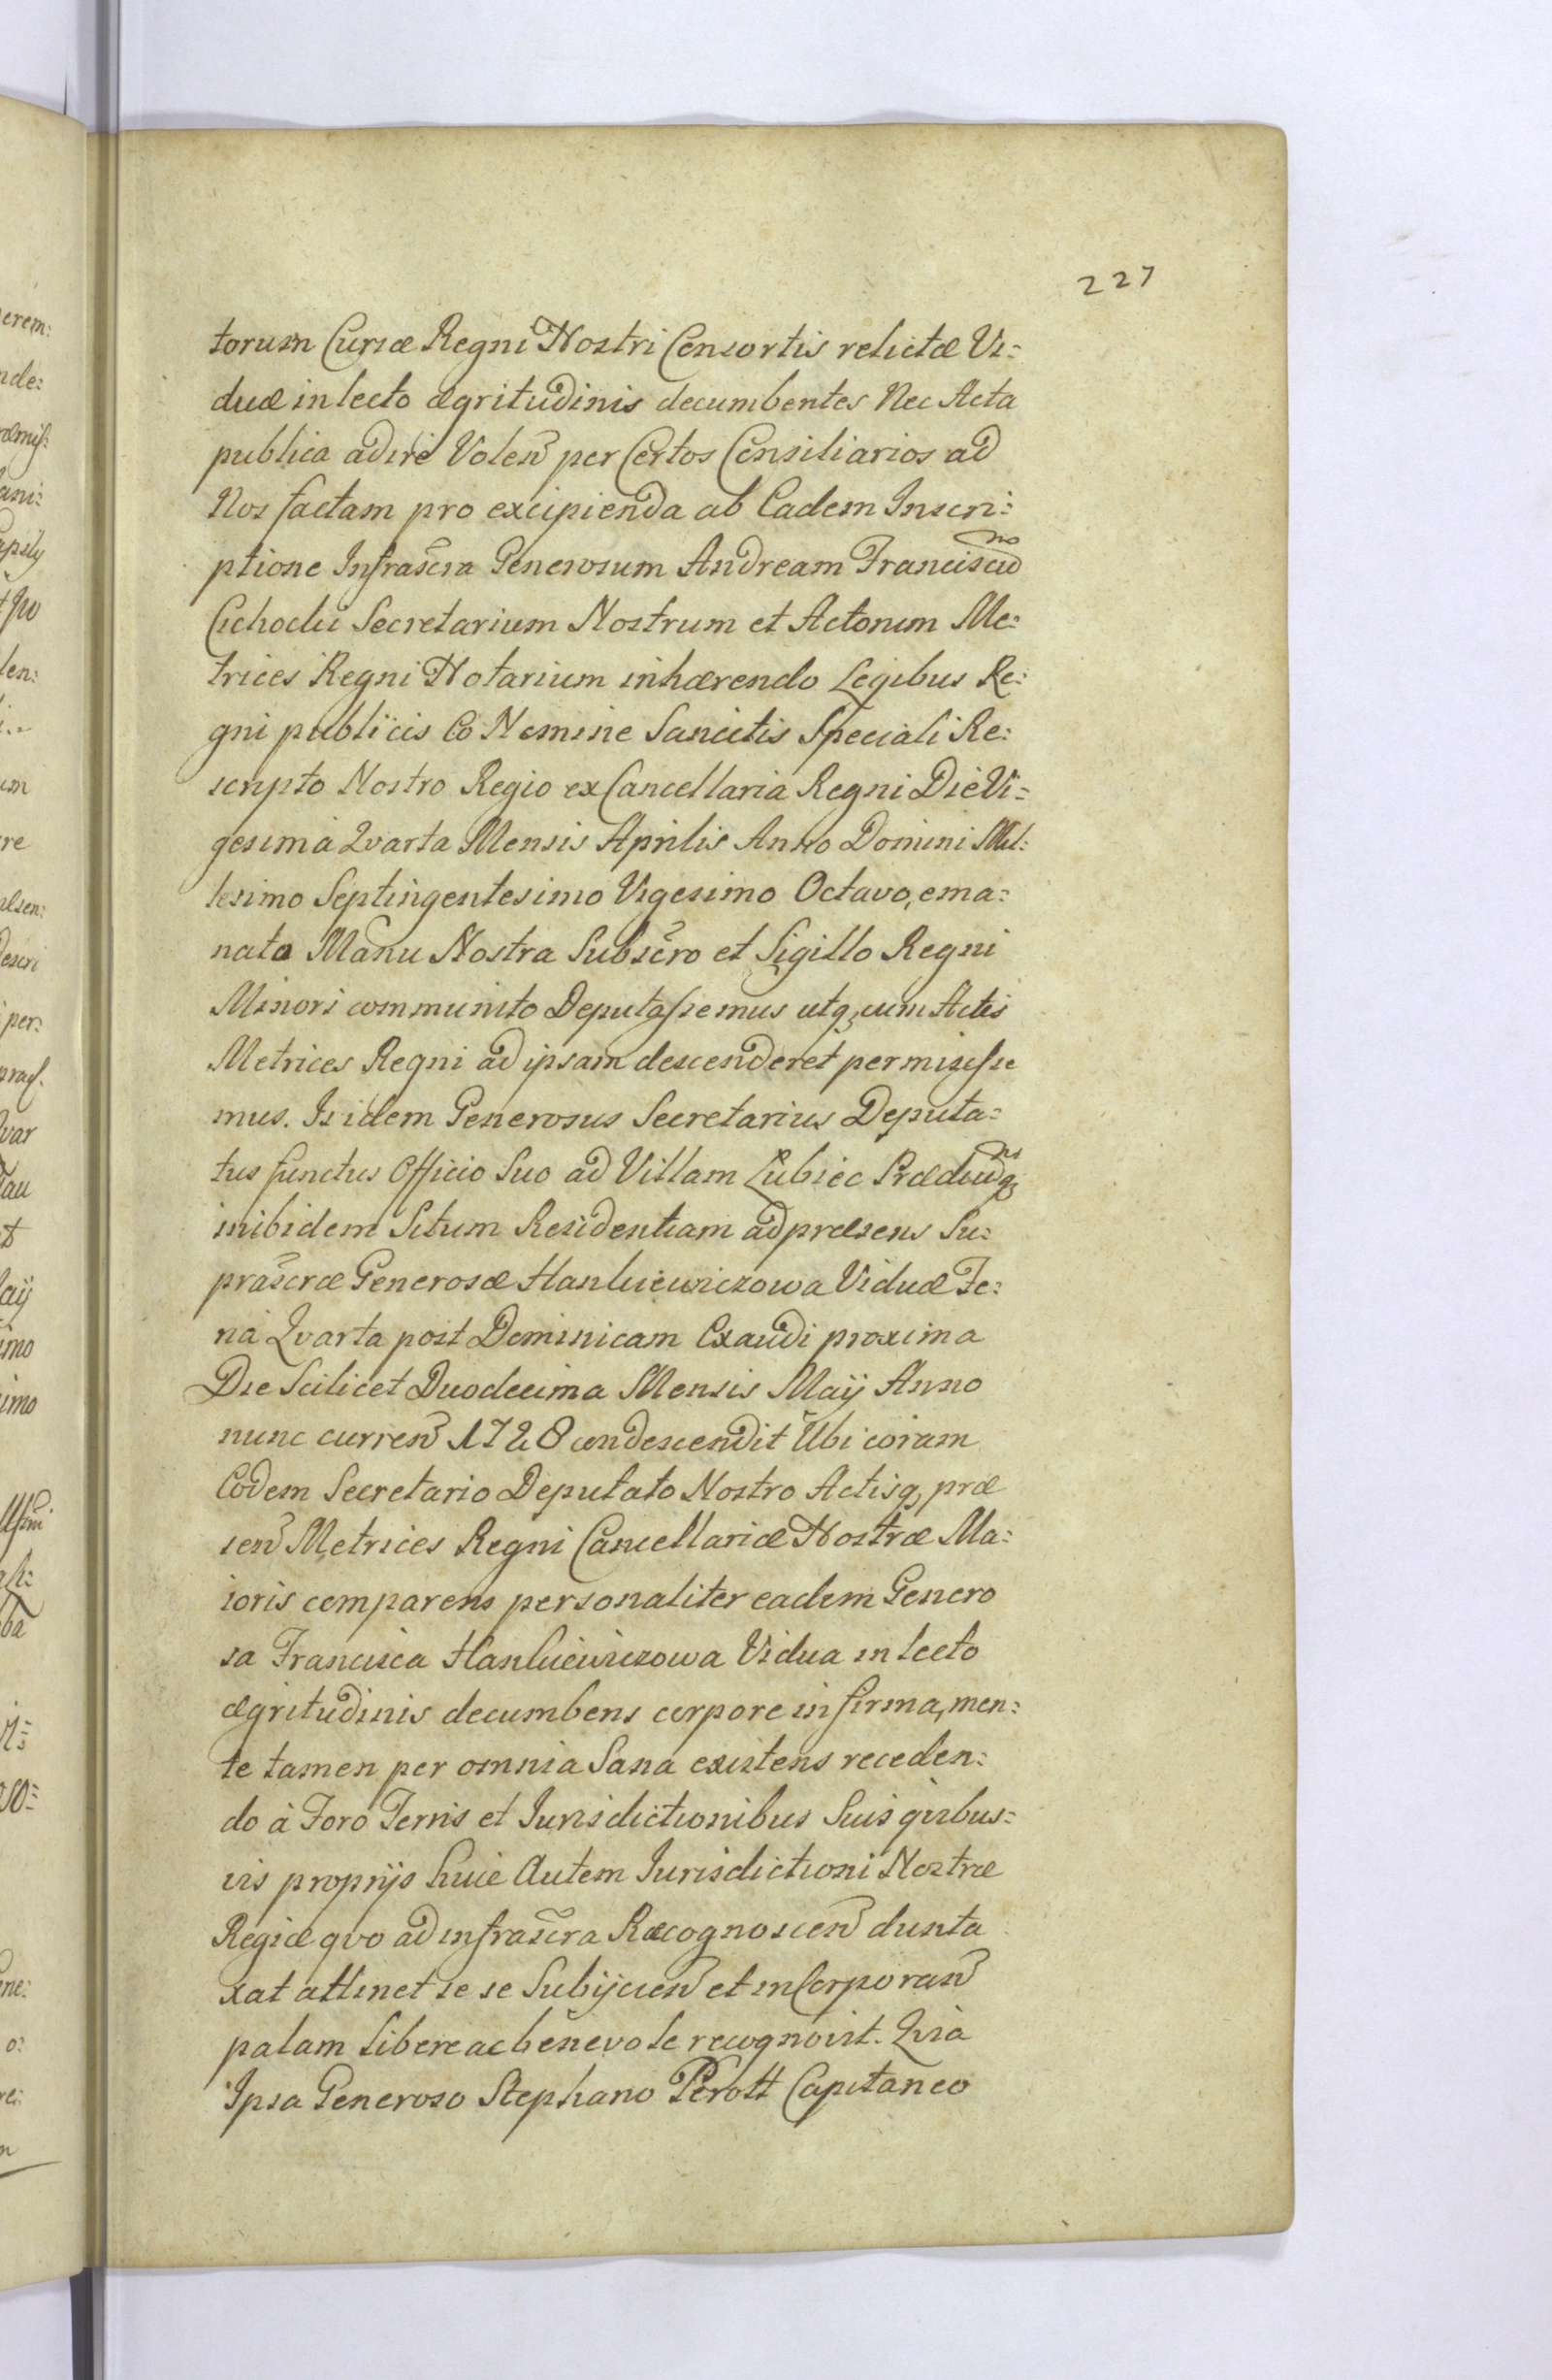 227
torum Curiæ Regni Nostri Consortis relictæ Vi:
duæ in lecto ægritudinis decumbentes Nec Acta
publica adire Voleñ per Certos Consiliarios ad
Nos factam pro excipienda ab Eadem Inscri:
ptione Infrascra Generosum Andream Franciscũ
Cichocki Secretarium Nostrum et Actorum Me:
trices Regni Notarium inhærendo Legibus Re:
gni publicis Eo Nomine Sancitis Speciali Re:
scripto Nostro Regio ex Cancellaria Regni Die Vi:
gesima Qvarta Mensis Aprilis Anno Domini Mil:
lesimo Septingentesimo Vigesimo Octavo, ema:
nato Manu Nostra Subscro et Sigillo Regni
Minori communito Deputassemus utq, cum Actis
Metrices Regni ad ipsam descenderet permisisse
mus. Is idem Generosus Secretarius Deputa:
tus functus Officio Suo ad Villam Lubiec Prædiumq,
inibidem Situm Residentiam ad præsens Su:
prascræ Generosæ Hankiewiczowa Viduæ Fe:
ria Qvarta post Dominicam Exaudi proxima
Die Scilicet Duodecima Mensis Maÿ Anno
nunc curreñ 1728 condescendit Ubi coram
Eodem Secretario Deputato Nostro Actisq, præ
señ Metrices Regni Cancellariæ Nostræ Ma:
ioris comparens personaliter eadem Genero
sa Francisca Hankiewiczowa Vidua in lecto
ægritudinis decumbens corpore infirma, men:
te tamen per omnia Sana existens receden:
do à Foro Terris et Iurisdictionibus Suis qvibus:
vis proprijs huic Autem Iurisdictioni Nostræ
Regiæ qvo ad infrascra Recognosceñ dunta
xat attinet se se Subijcieñ et inCorporañ
palam libere ac benevole recognovit. Qvia
Ipsa Generoso Stephano Perott Capitaneo